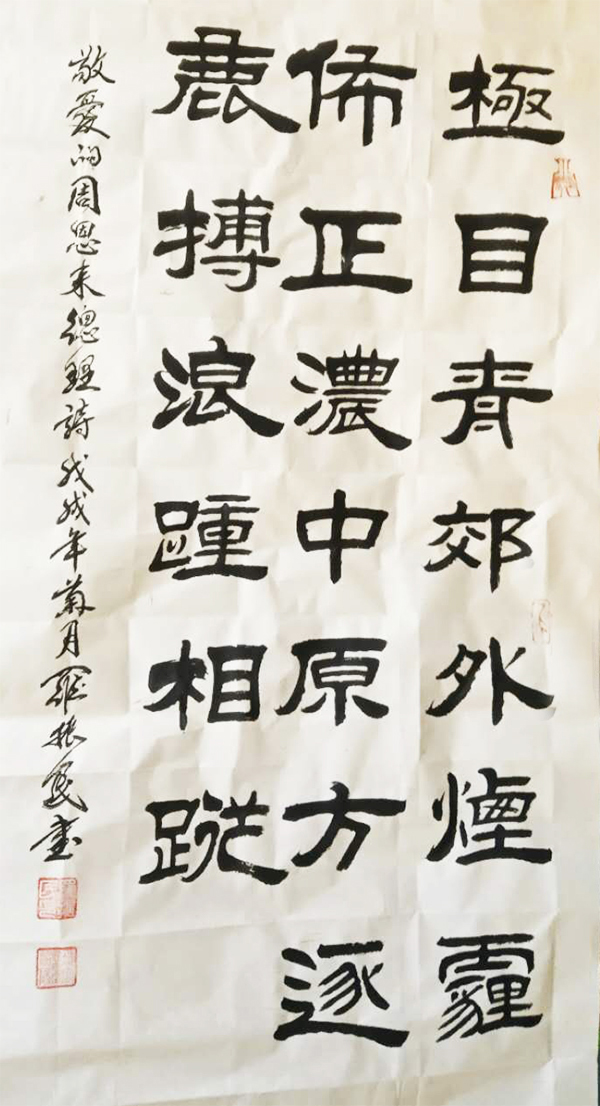 極目青郊外煙霾
佈正濃中原方逐
鹿搏浪踵相蹤
敬愛的周恩来總理詩戊戌年菊月羅振書